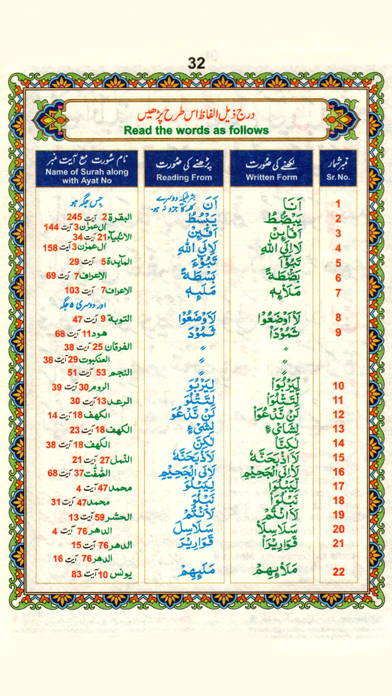 32
درج ذیل الفاظ اس طرح پڑھیں
Read the words as follows
نمبر شمار لکھنے کی صورت پڑھنے کی صورت نام سورت مع آیت نمبر
Sr. No. Written Form Reading From Name of Surah along with Ayat No
1 اَنَا اَنَ جس جگہ ہو
2 يَبْصُۜطُ يَبْسُطُ البقرة 2 آیت 245
3 اَفَا۟ئِنْ اَفَئِنْ آل عمرٰن 3 آیت 144
الانبیاء 21 آیت 34
4 لَا۟اِلَى اللهِ لَاِلَى اللهِ آل عمرٰن 3 آیت 158
5 تَبُوْٓءَا۟ تَبُوْٓءَ المآئدة 5 آیت 29
6 بَصْۜطَةً بَسْطَةً الاعراف 7 آیت 69
7 مَلَا۟ئِهٖ مَلَئِهٖ الاعراف 7 آیت 103
اور دوسری 5 جگہ
8 لَا۟اَوْضَعُوْا لَاَوْضَعُوْا التوبة 9 آیت 47
9 ثَمُوْدَا۟ ثَمُوْدَ هود 11 آیت 68
〃 〃 الفرقان 25 آیت 38
〃 〃 العنکبوت 29 آیت 38
〃 〃 النجم 53 آیت 51
10 لِيَرْبُوَا۟ لِيَرْبُوَ الروم 30 آیت 39
11 لِتَتْلُوَا۟ لِتَتْلُوَ الرعد 13 آیت 30
12 لَنْ نَّدْعُوَا۟ لَنْ نَّدْعُوَ الکهف 18 آیت 14
13 لِشَا۟يْءٍ لِشَيْءٍ الکهف 18 آیت 23
14 لٰكِنَّا۟ لٰكِنَّ الکهف 18 آیت 38
15 لَا۟اَذْبَحَنَّهٗ لَاَذْبَحَنَّهٗ النمل 27 آیت 21
16 لَا۟اِلَى الْجَحِيْمِ لَاِلَى الْجَحِيْمِ الصّٰفّٰت 37 آیت 68
17 لِيَبْلُوَا۟ لِيَبْلُوَ محمد 47 آیت 4
18 نَبْلُوَا۟ نَبْلُوَ محمد 47 آیت 31
19 لَا۟اَنْتُمْ لَاَنْتُمْ الحشر 59 آیت 13
20 سَلٰسِلَا۟ سَلَاسِلَ الدهر 76 آیت 4
21 قَوَارِيْرَا۟ قَوَارِيْرَ الدهر 76 آیت 15
الدهر 76 آیت 16
22 مَلَا۟ئِهِمْ مَلَئِهِمْ یونس 10 آیت 83